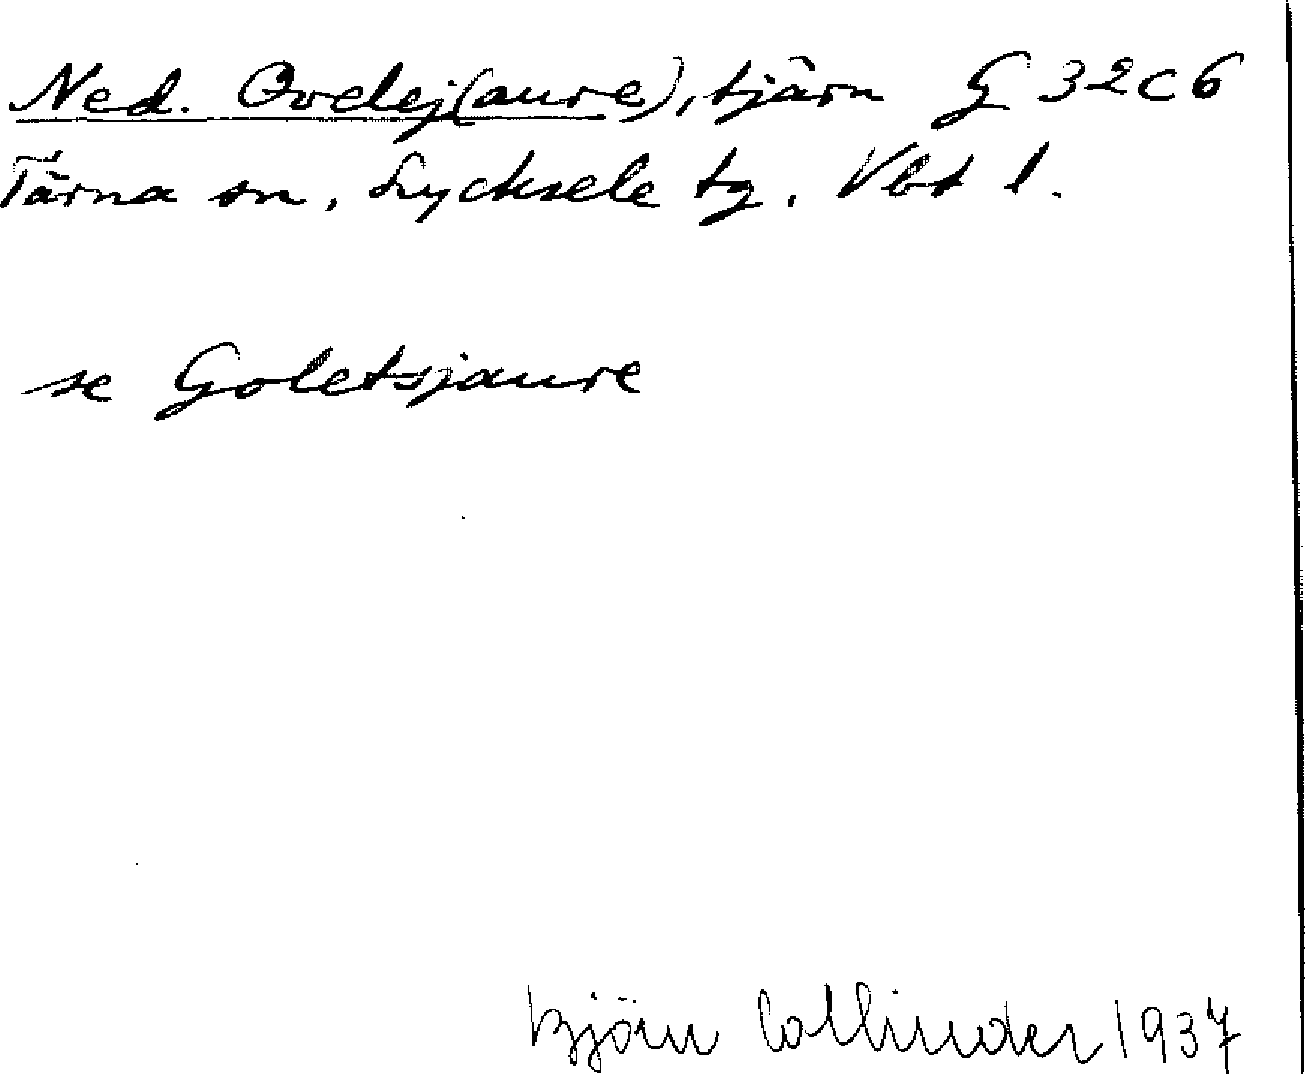 Ned. Ovdej(aure), tjärn G 32 c 6
Tärna sn, Lycksele tg. Vbt l.
se Goletsjaure
Björn Collinder 1937